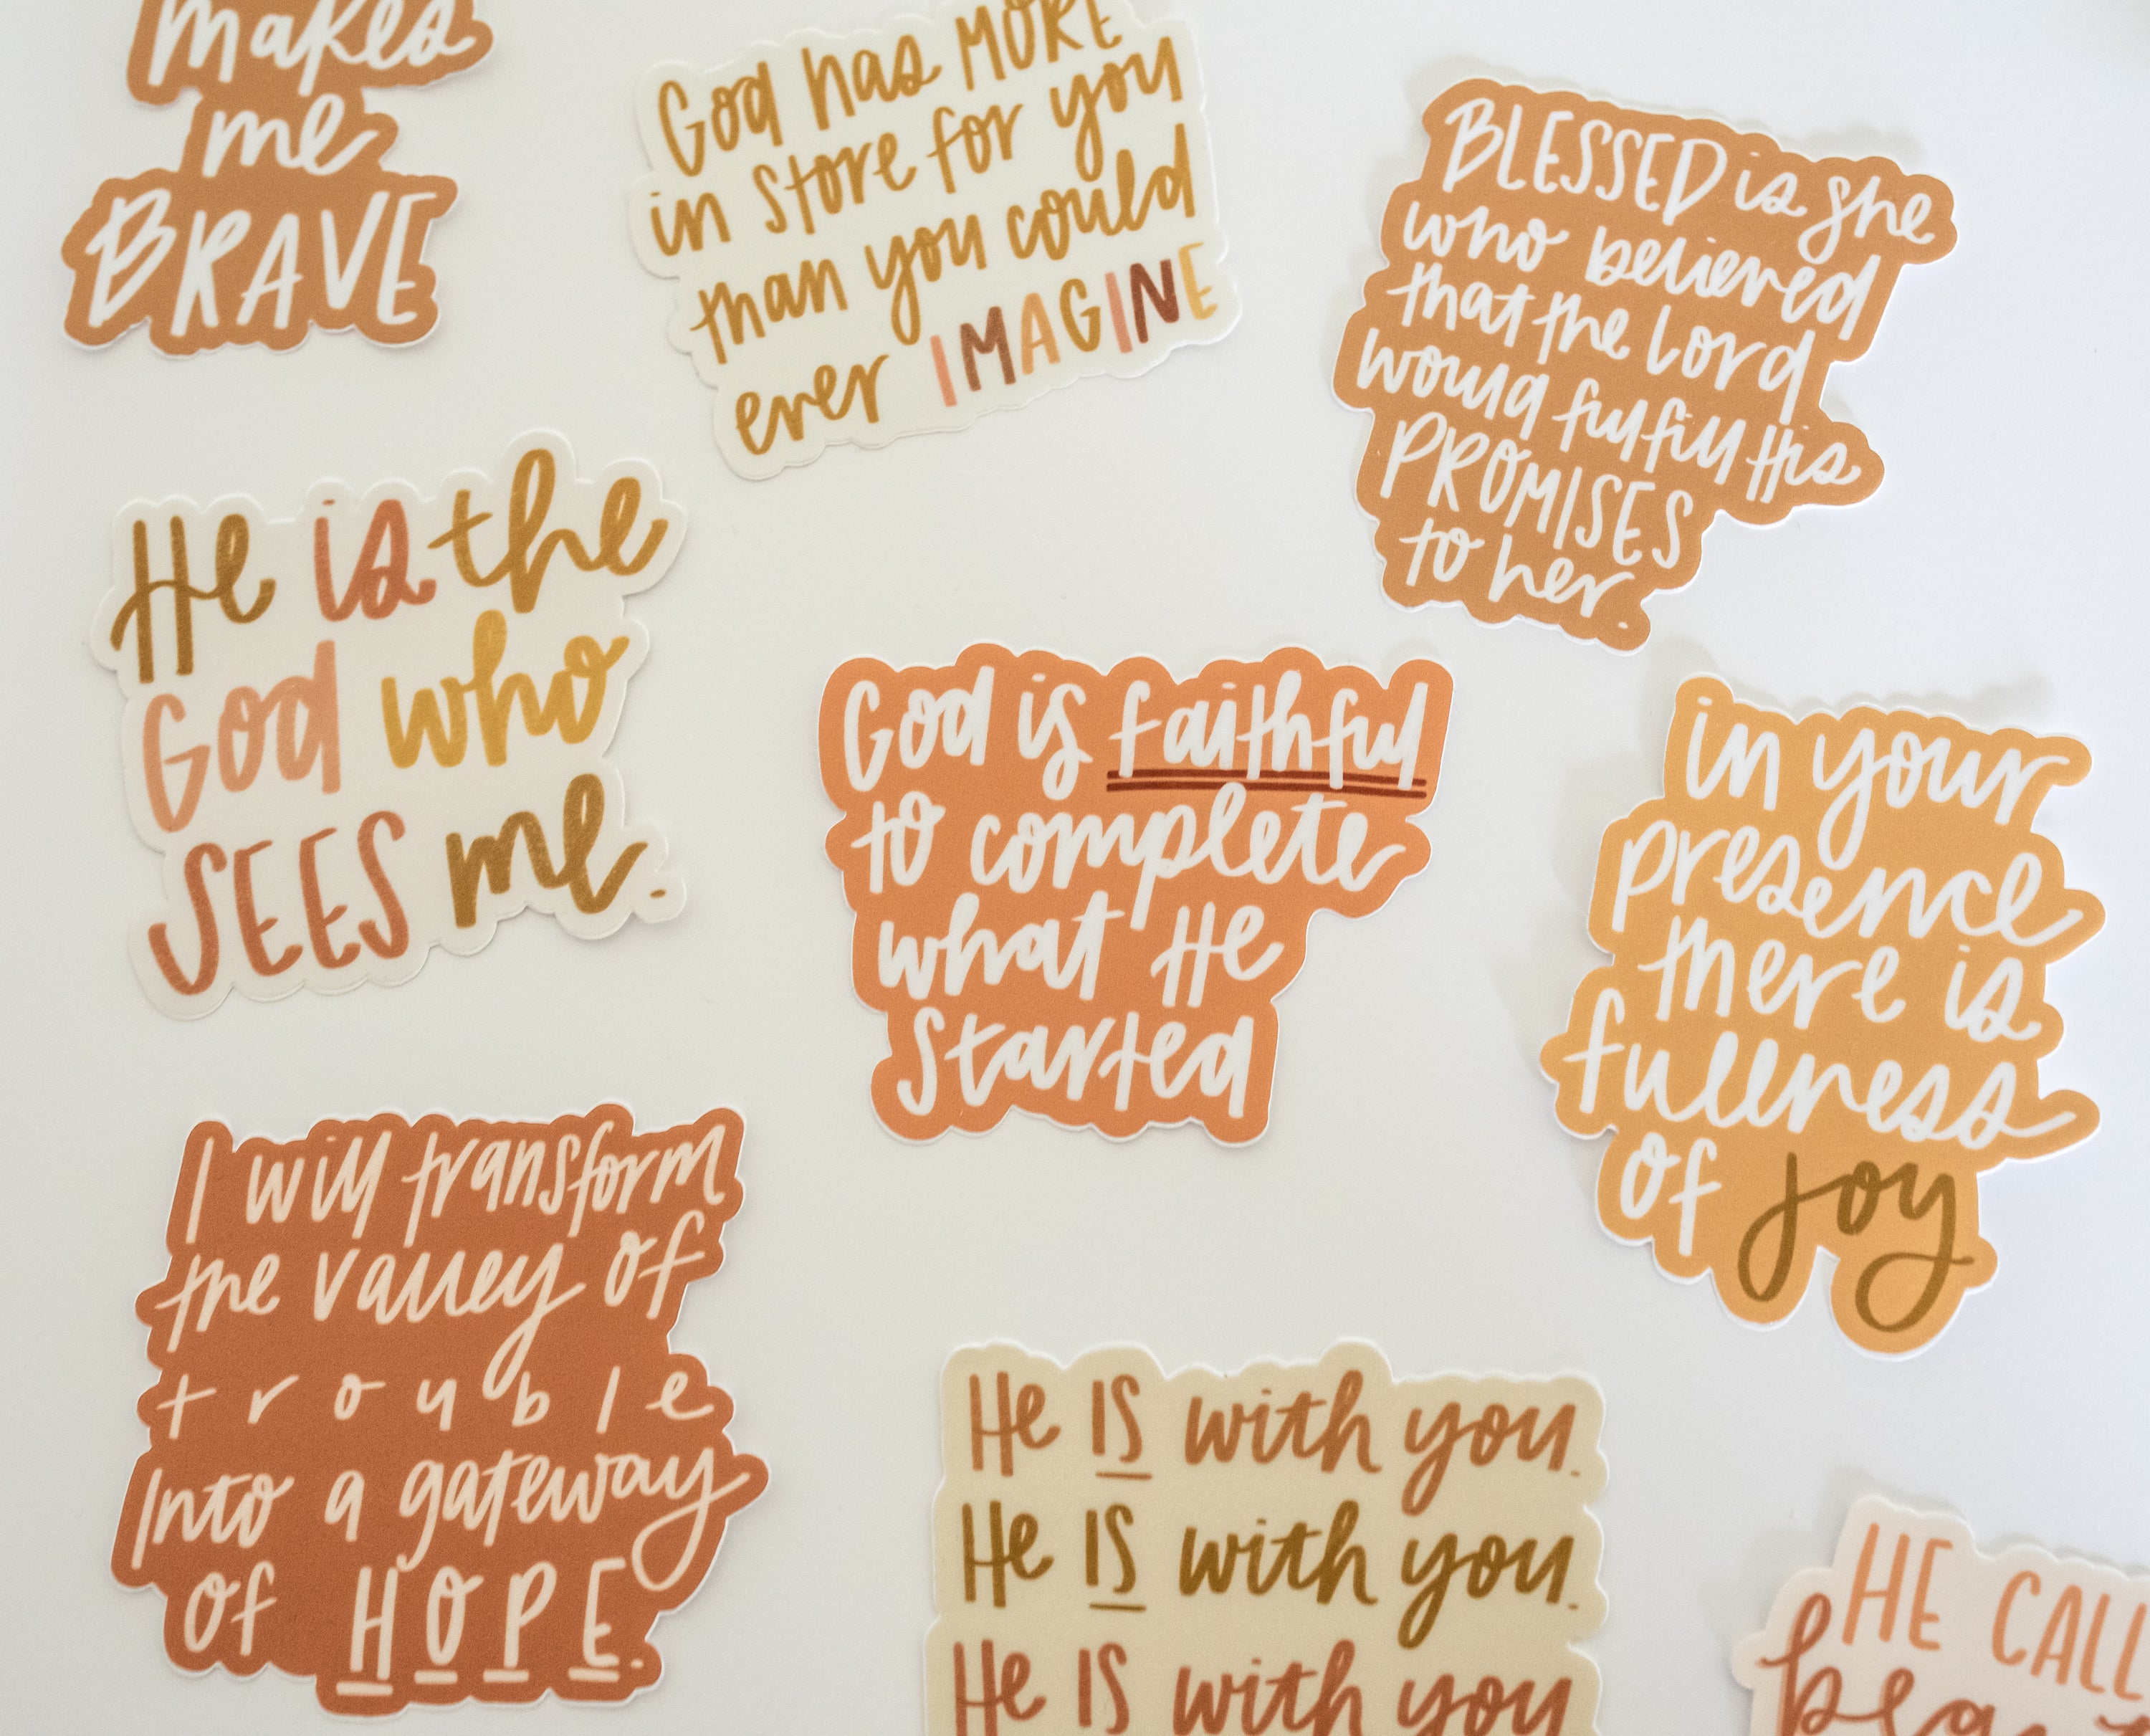 makes
me
BRAVE
God has MORE
in store for you
than you could
ever IMAGINE
BLESSED is she
who believed
that the Lord
would fulfill His
PROMISES
to her.
He is the
God who
SEES me.
God is faithful
to complete
what He
started
in your
presence
there is
fullness
of joy
I will transform
the valley of
trouble
Into a gateway
of HOPE.
He IS with you.
He IS with you.
He IS with you
HE CALL